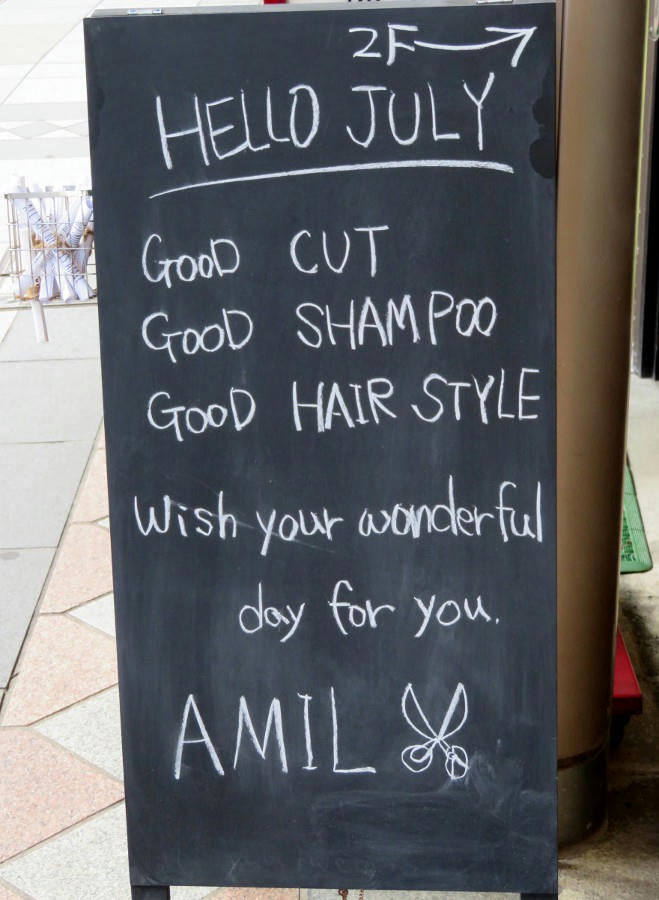 2F
HELLO JULY
GOOD CUT
GOOD SHAMPOO
GOOD HAIR STYLE
Wish your wonderful
day for you.
AMIL